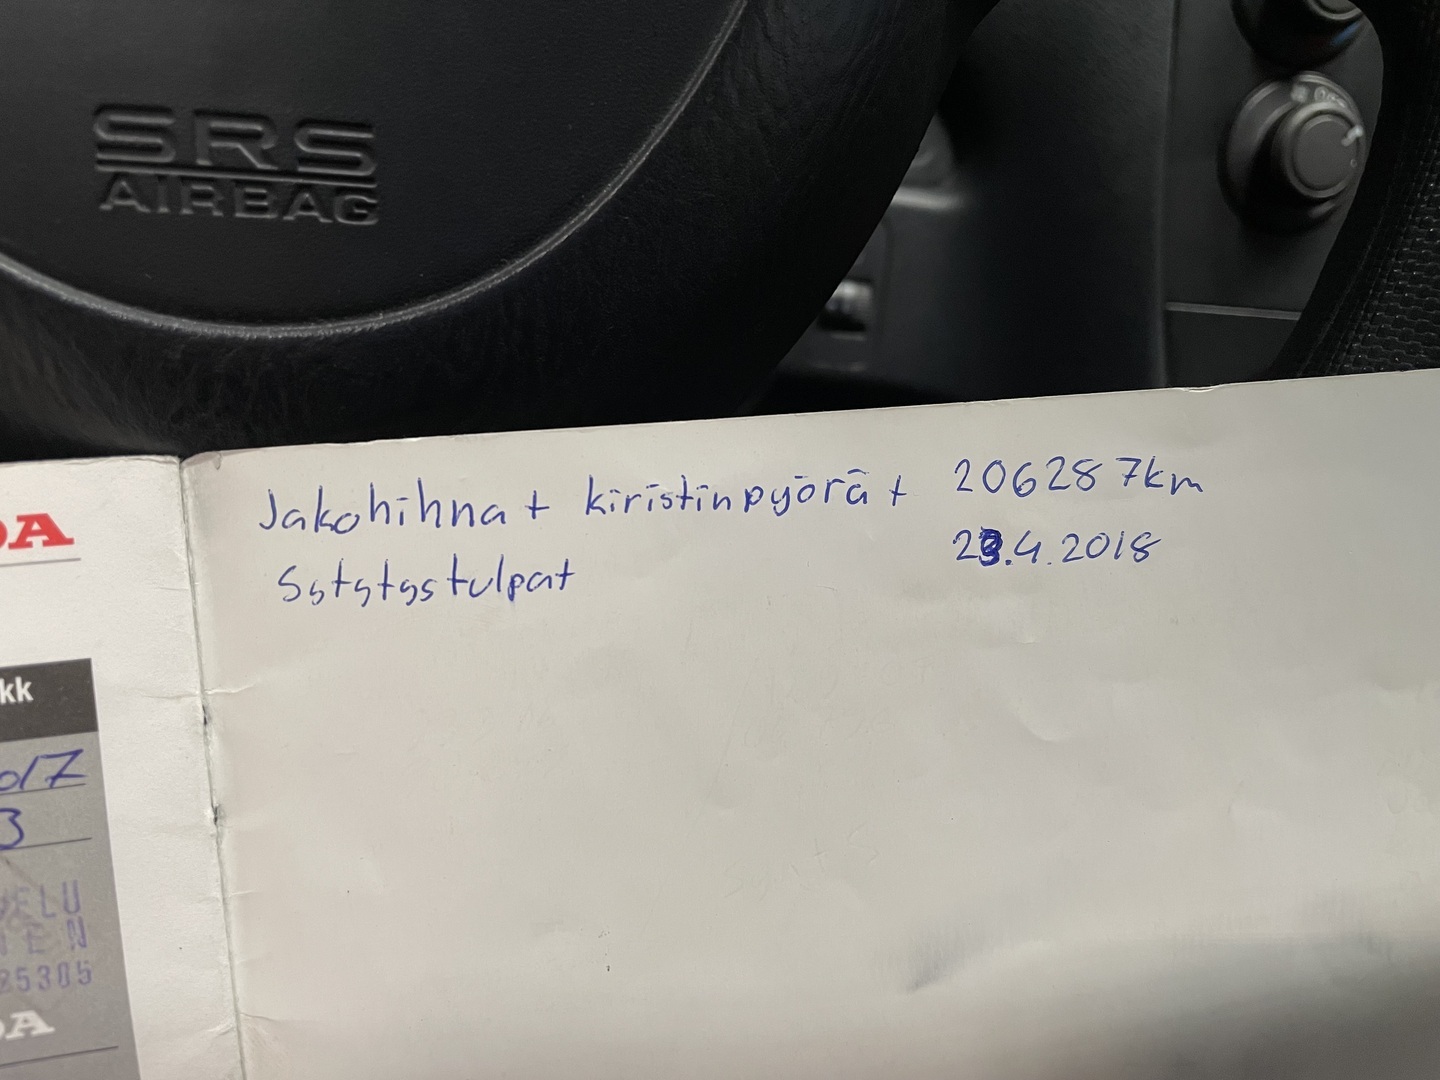 SRS
AIRBAG
Jakohihna + kiristinpyörä + 206287km
Sytytystulpat 23.4.2018
DA
kk
017
3
VELU
NEN
25305
DA